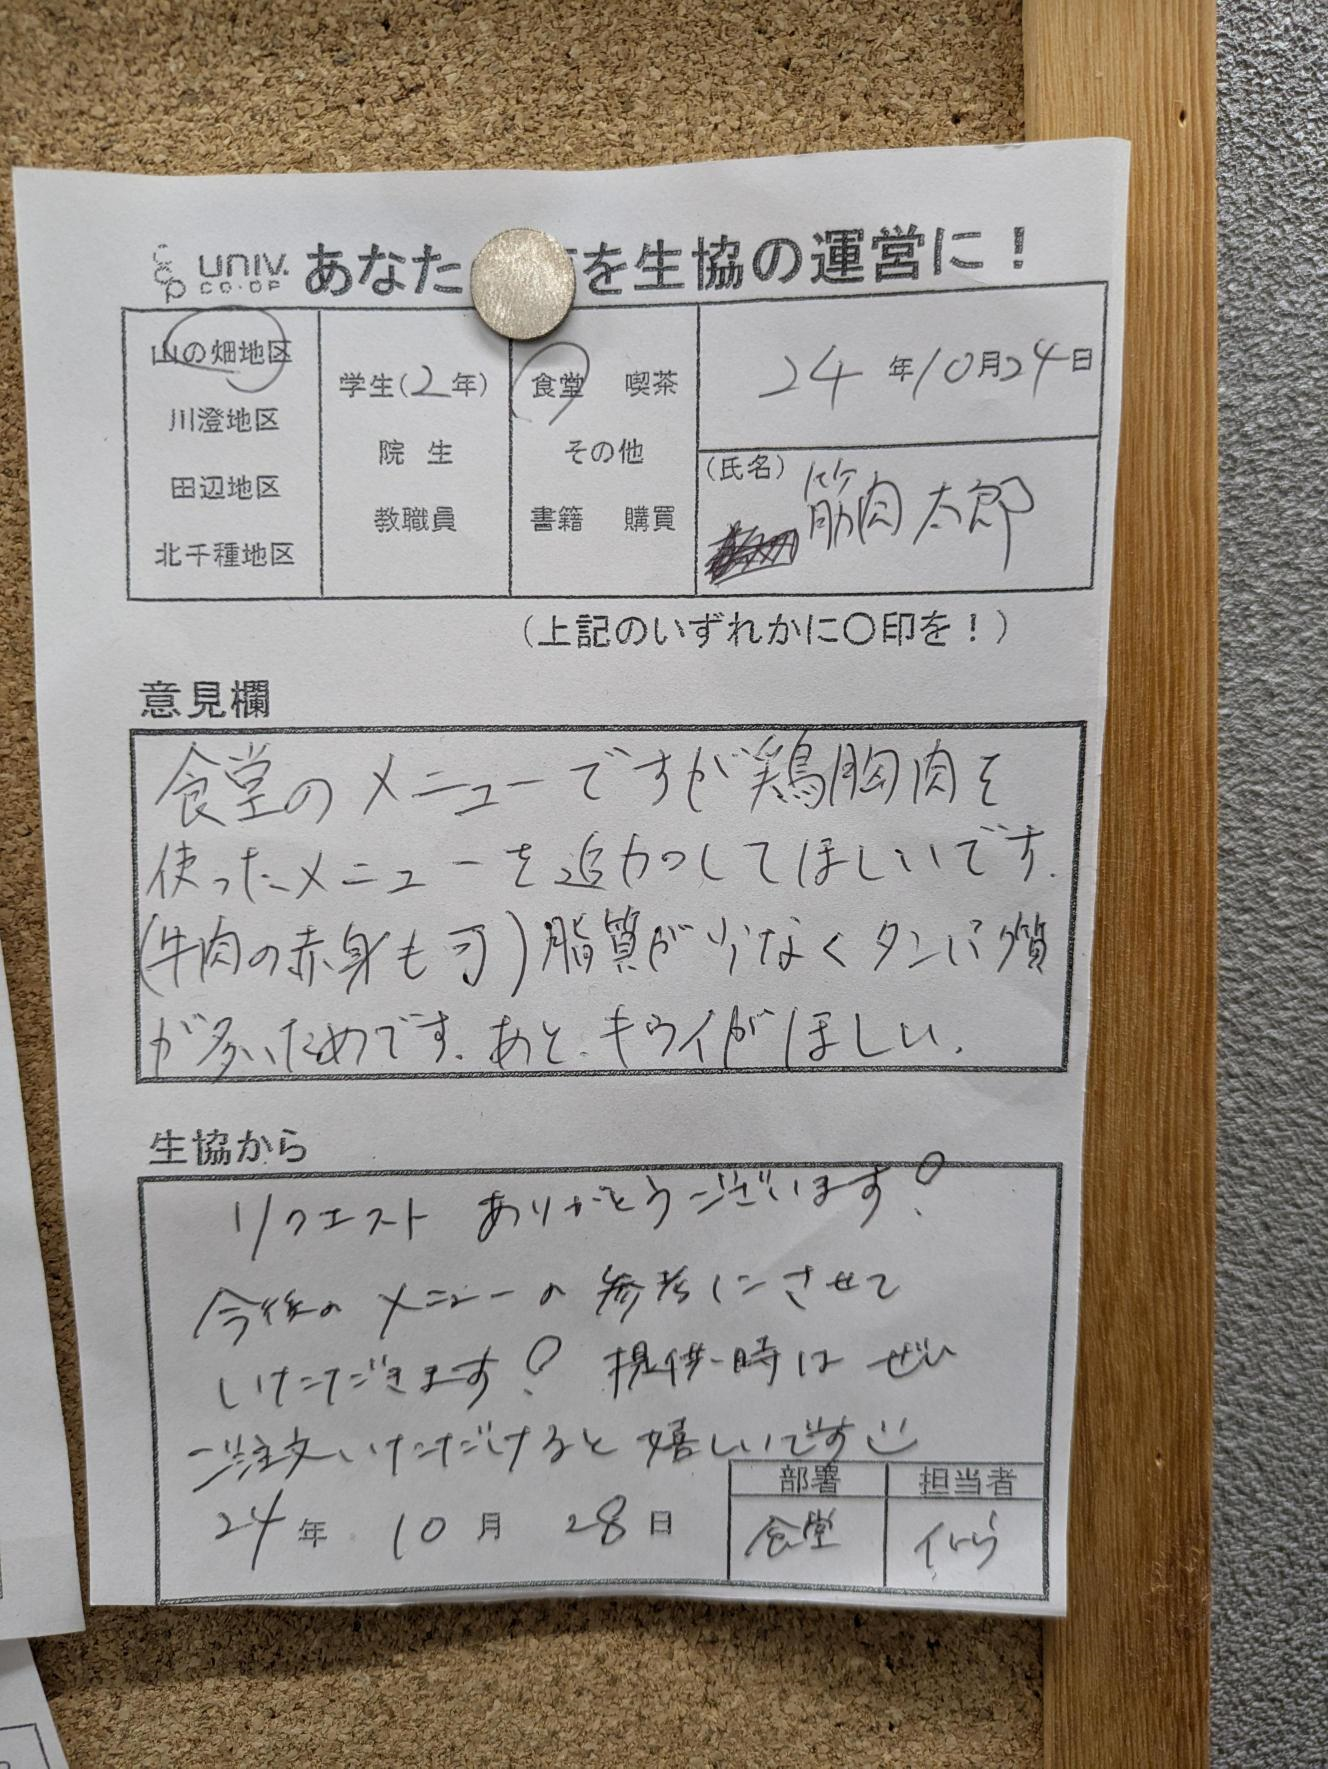 UNIV.
CO·OP
あなた を生協の運営に!
山の畑地区
川澄地区
田辺地区
北千種地区
学生(2年)
院 生
教職員
食堂 喫茶
その他
書籍 購買
24年10月24日
(氏名)
筋肉太郎
(上記のいずれかに〇印を!)
意見欄
食堂のメニューですが鶏胸肉を
使ったメニューを追加してほしいです.
(牛肉の赤身も可)脂質が少なくタンパク質
が多いためです.あと、キウイがほしい.
生協から
リクエスト ありがとうございます!
今後のメニューの参考にさせて
いただきます! 提供時は ぜひ
ご注文いただけると嬉しいです
24年 10月 28日
部署
食堂
担当者